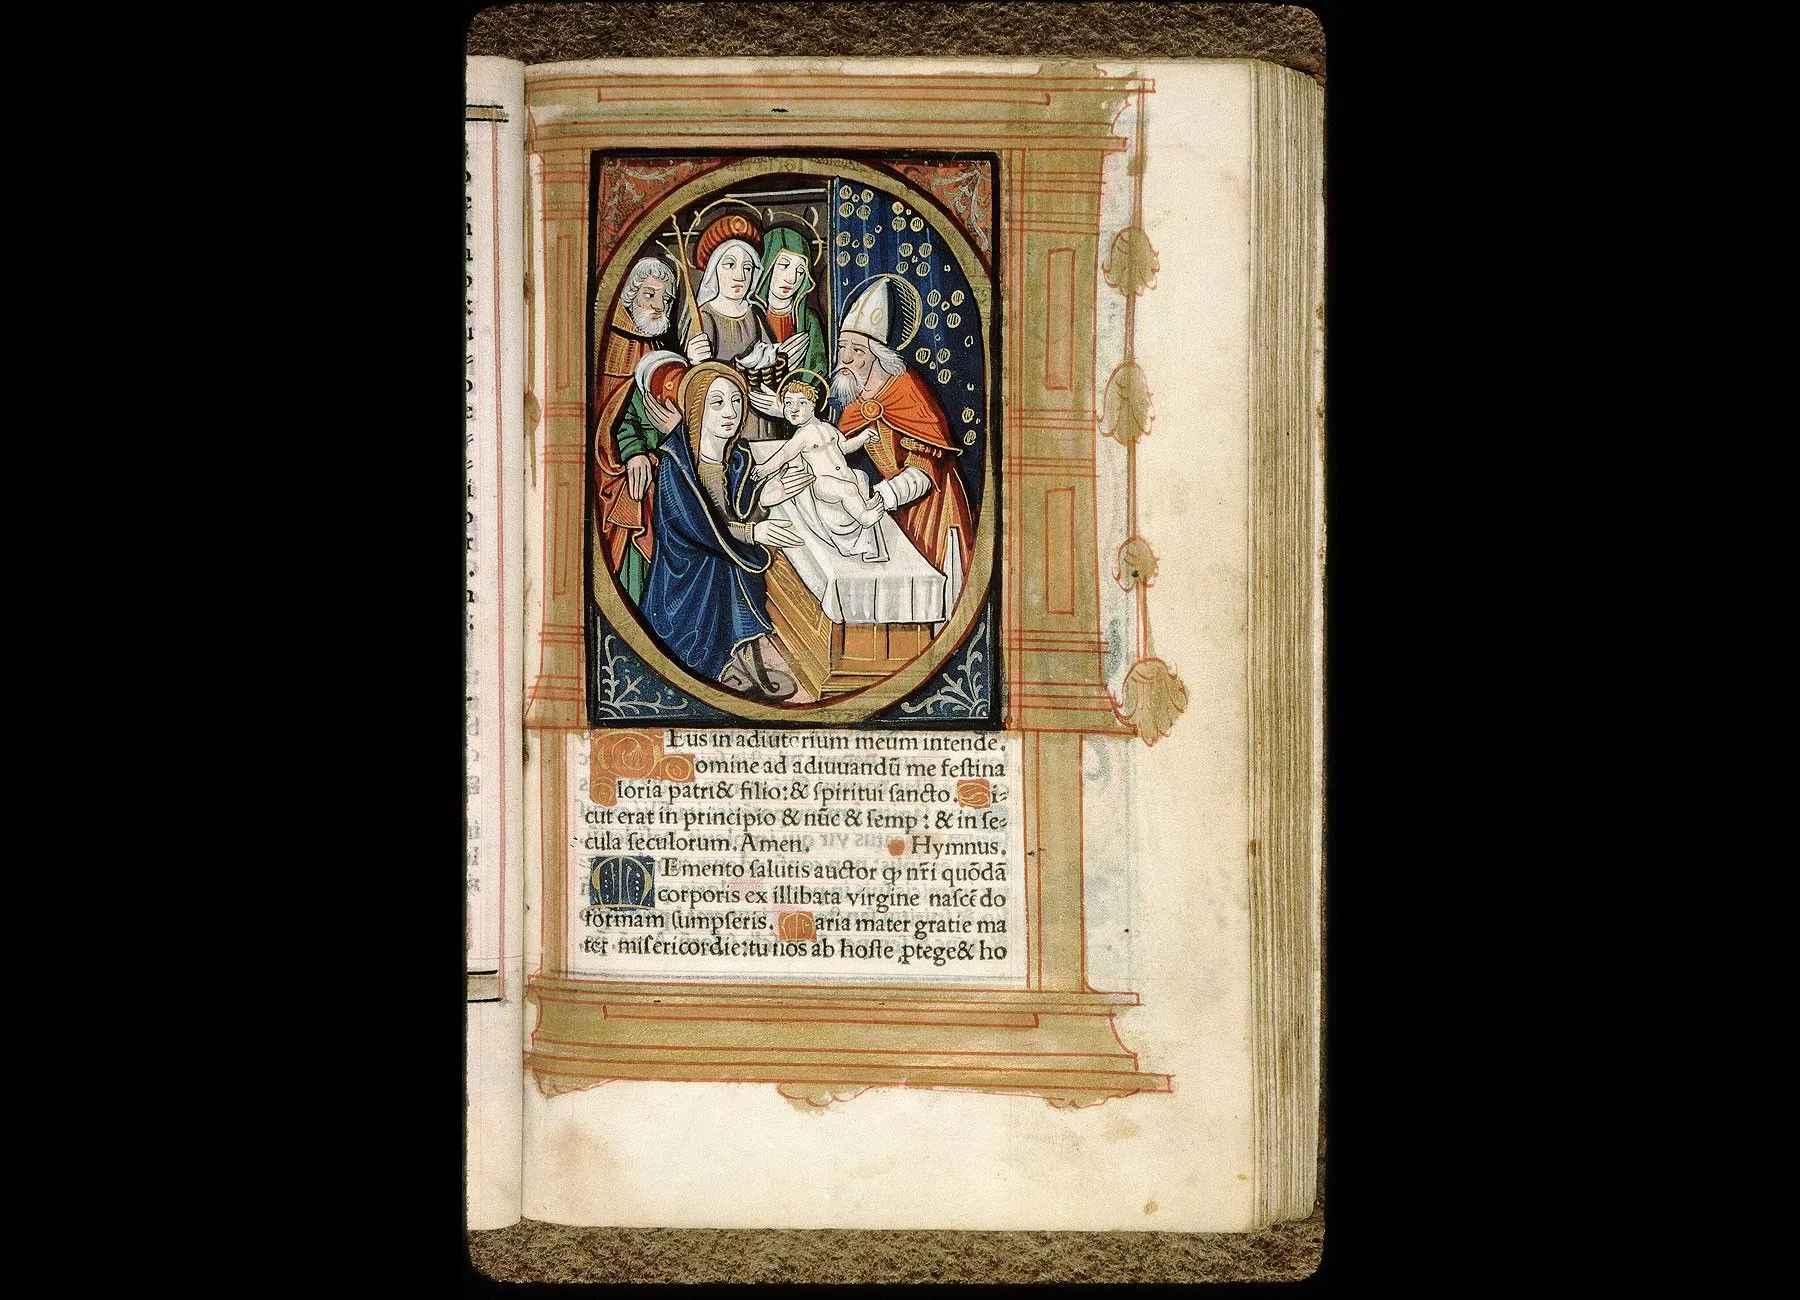 DEus in adiutorium meum intende.
Domine ad adiuuandū me feſtina
Gloria patri & filio: & ſpiritui ſancto. Si⸗
cut erat in principio & nūc & ſemp : & in ſe⸗
cula ſeculorum. Amen. Hymnus.
MEmento ſalutis auctor ꝙ nr̄i quōdā
corporis ex illibata virgine naſcēdo
formam ſumpſeris. Maria mater gratie ma
ter miſericordie: tu nos ab hoſte ꝓtege & ho